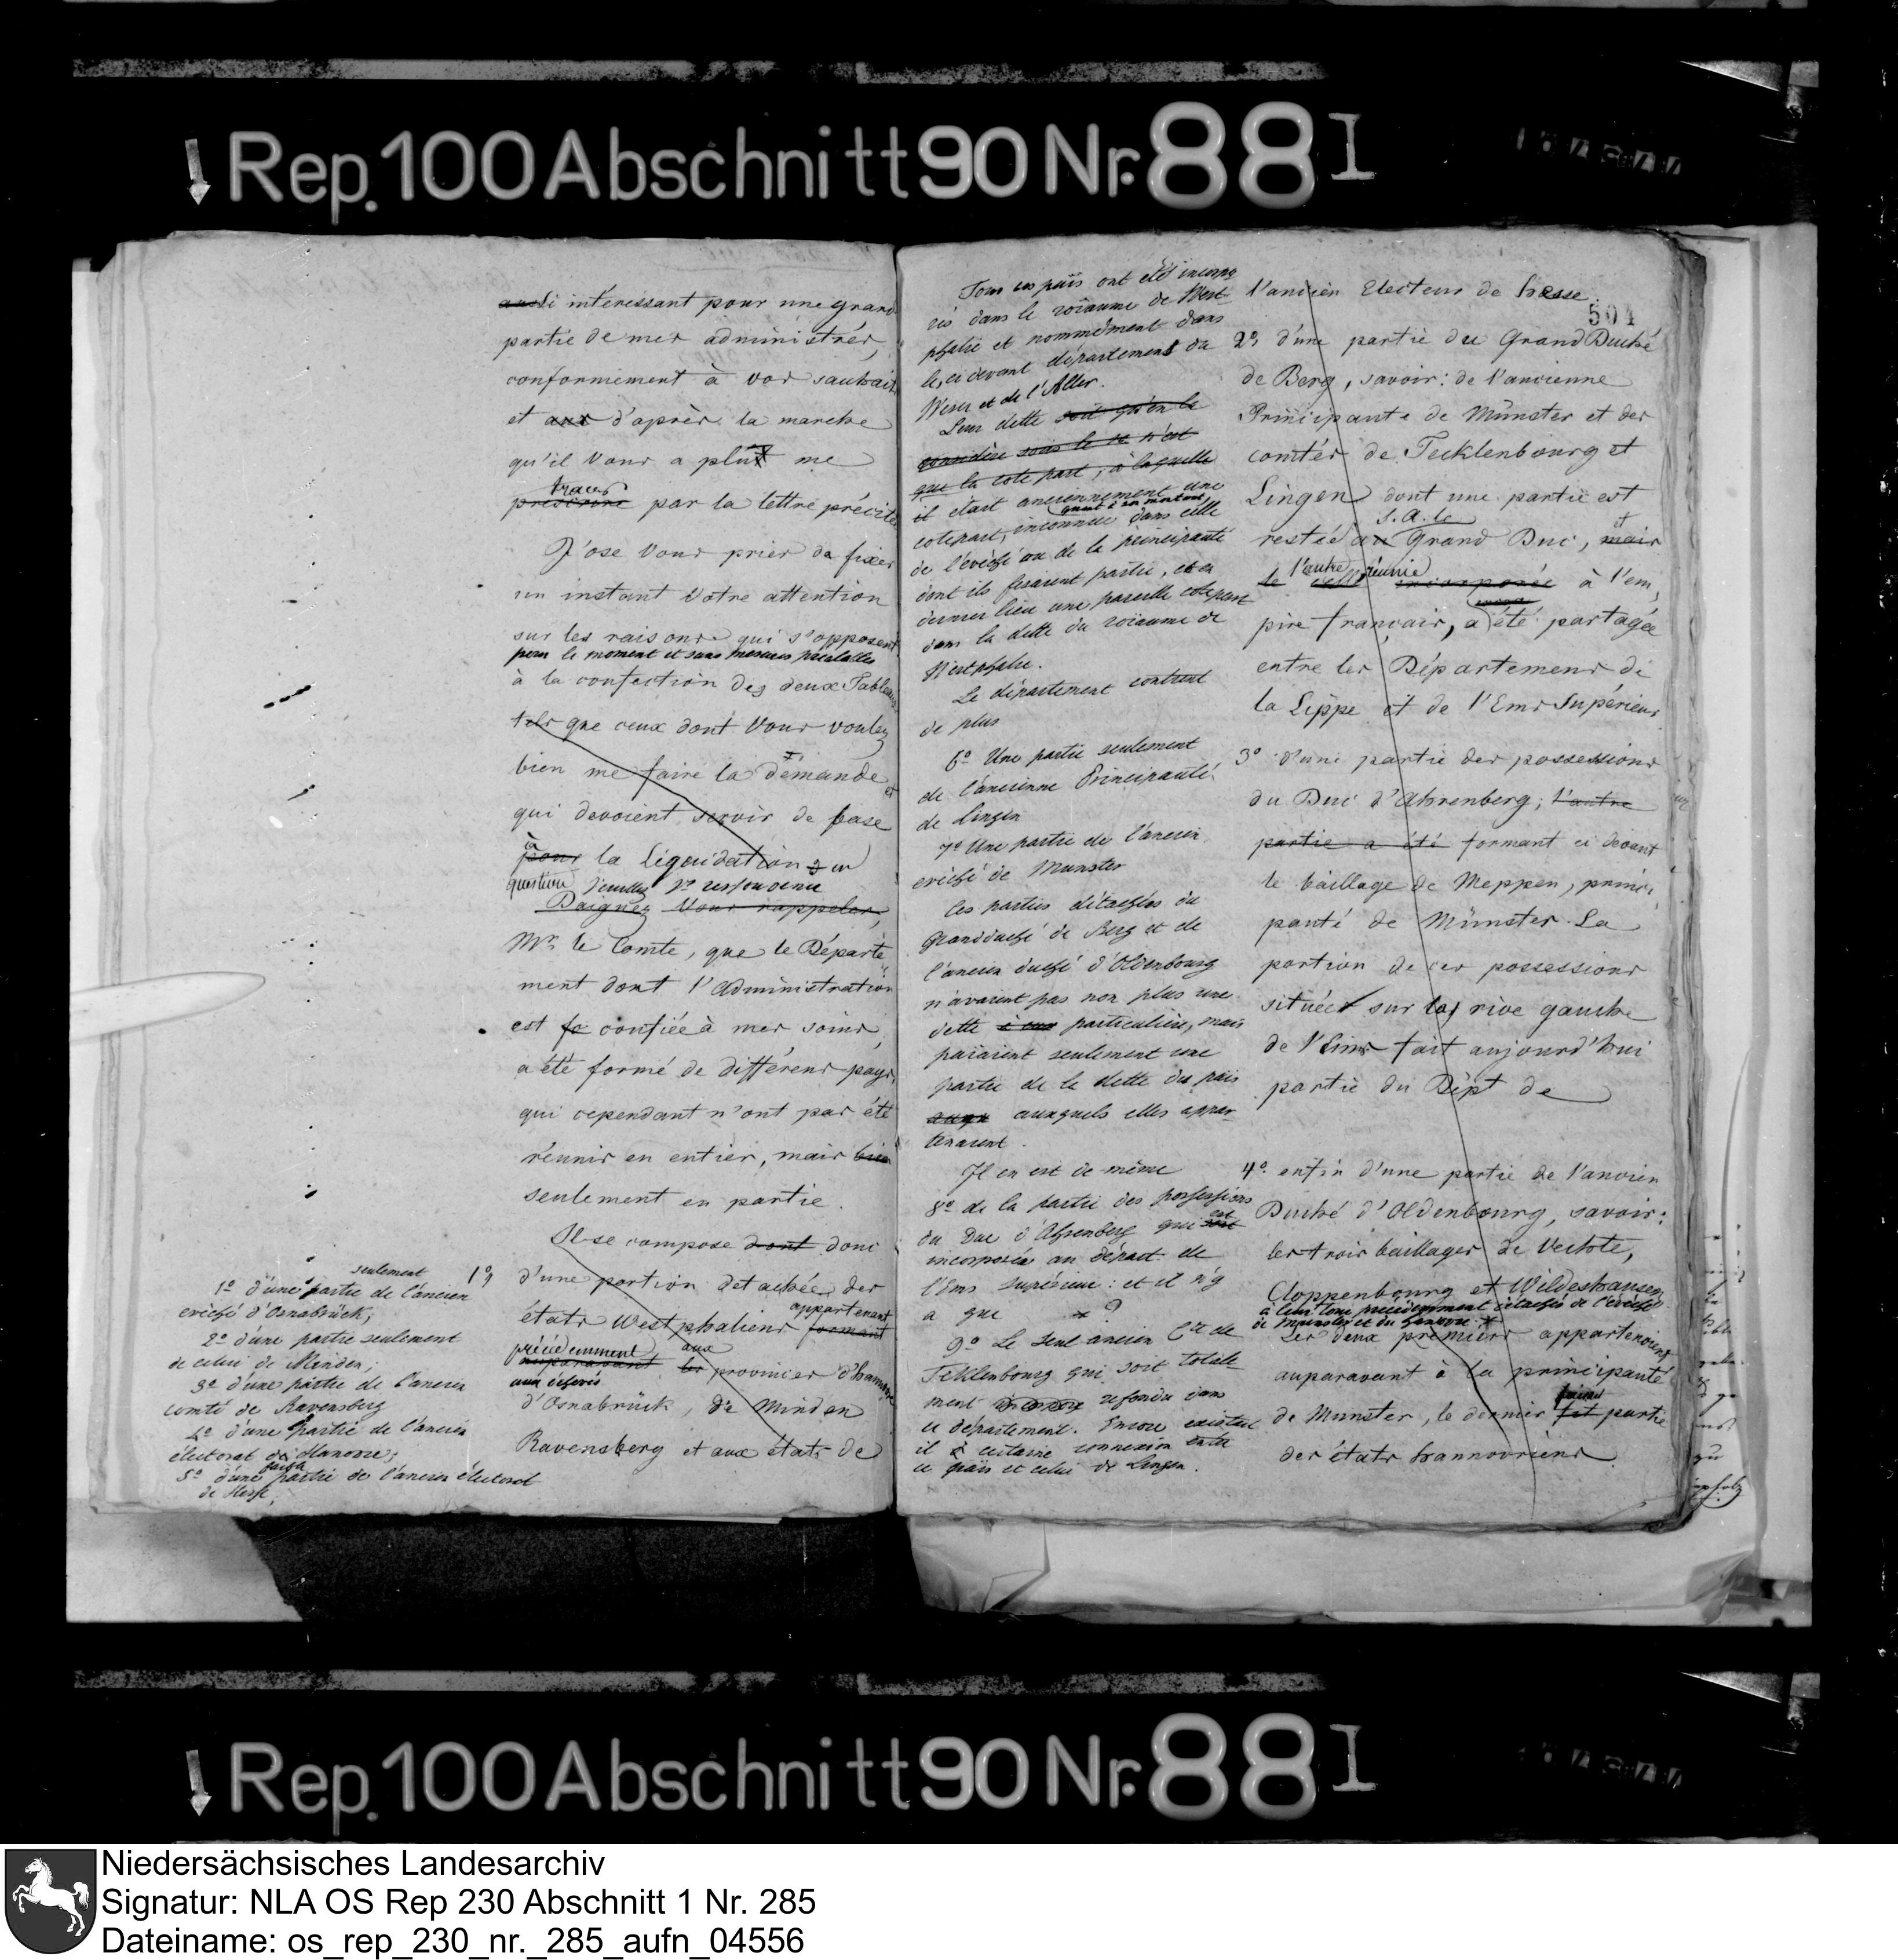 Rep. 100 Abschnitt 90 Nr. 88 I
aussi intéressant pour une grand
partie de mes administrés,
conformément à vos souhaits
et aux d'après la marche
qu'il Vous a plu me
tracer
prescrire par la lettre précitée
J'ose Vous prier da fixer
un instant Votre attention
sur les raisons qui s'opposent
pour le moment et sans mesures préalables
à la confection des deux Tableaux
tels que ceux dont Vous voulez
bien me faire la demande et
qui devoient servir de base
à
pour la Liquidation en
question Veuillez
Daignez Vous rappeler,
Mr. le Comte, que le Départe
ment dont l'Administration
est confiée à mes soins,
a été formé de différens pays,
qui cependant n'ont pas été
réunis en entier, mais bien
seulement en partie.
Il se compose dont donc
1°, d'une portion detachée des
états Westphaliens appartenant
formant
précédemment aux
auparavant les provinces d'hanovre
aux évêchés
d'Osnabrück, de Minden
Ravensberg et aux états de
seulement
1° d'une partie de l'ancien
evêché d'Osnabrück;
2° d'une partie seulement
de celui de Minden;
3° d'une partie de l'ancien
comté de Ravensberg
4° d'une partie de l'ancien
électorat de Hanovre;
5° d'une partie de l'ancien électorat
de Hesse;
Tous ces païs ont été incorpo
rés dans le roïaume de West
phalie et nommément dans
les ci devant départemens du
Weser et de l'Aller.
Leur dette soit qu'on la
considère sous le n'est
que la cote part, à laquelle
il etait anciennement une
quant à son montant,
cotepart, inconnue dans celle
de l'évêché ou de la principauté
dont ils fesaient partie, et en
dernier lieu une pareille cotepart
dans la dette du roïaume de
Westphalie.
Le département contient
de plus
6° Une partie seulement
de l'ancienne Principauté
de Lingen
7° Une partie de l'ancien
evêché de Munster
Ces parties détachées du
Grandduché de Berg et de
l'ancien duché d'Oldenbourg
n'avaient pas non plus une
dette particulière, mais
païaient seulement une
partie de la dette du païs
auxquels elles appar
tenaient.
Il en est de même
8° de la partie des possessions
du Duc d'Ahrenberg qui est
incorporée au départ. de
l'Ems supérieur: et il n'y
a que
9° Le seul ancien Cté de
Tecklenbourg qui soit totale
ment refondu dans
ce département. Encore existait
il certaine connexion entre
ce païs et celui de Lingen.
l'ancien Electeur de hesse.
501
2°, d'une partie du Grand Duché
de Berg, savoir: de l'ancienne
Principauté de Münster et des
comtés de Tecklenbourg et
Lingen dont une partie est
S. A. le et
restée au Grand Duc, mais
l'autre réunie
le celle incorporée à l'em,
pire français, a été partagée
entre les Départemens de
la Lippe et de l'Ems Supérieur
3° d'une partie des possessions
du Duc d'Ahrenberg; l'autre
partie a été formant ci devant
le baillage de Meppen, princi,
pauté de Münster. La
portion de ces possessions
située sur la rive gauche
de l'Ems fait aujourd'hui
partie du Dépt de
4° enfin d'une partie de l'ancien
Duché d'Oldenbourg, savoir:
les trois baillages de Vechte,
Cloppenbourg et Wildeshausen
à leur tour précédemment détachés de l'évêché
de Munster et du Hanovre.
Les deux premiers appartenoient
auparavant à la principauté
de Munster, le dernier faisait
fit partie
des états hannovriens.
Rep. 100 Abschnitt 90 Nr. 88 I
Niedersächsisches Landesarchiv
Signatur: NLA OS Rep 230 Abschnitt 1 Nr. 285
Dateiname: os_rep_230_nr._285_aufn_04556